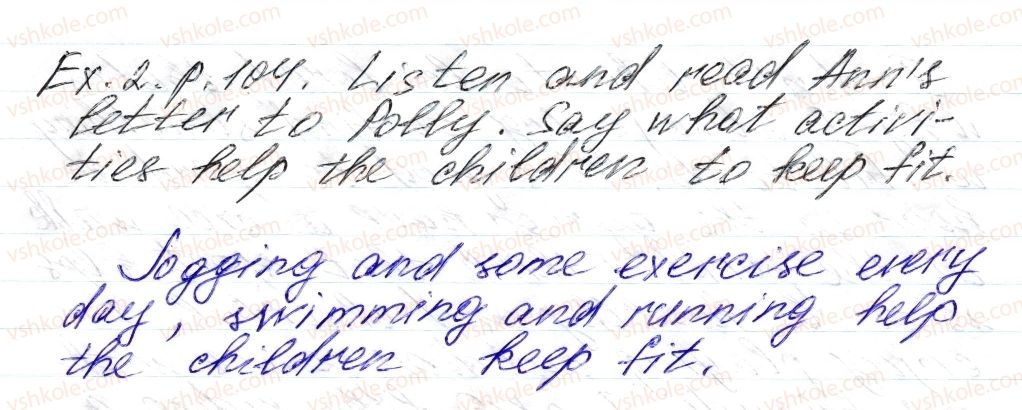 Ex. 2. p. 104. Listen and read Ann's
letter to Polly. Say what activi-
ties help the children to keep fit.
Jogging and some exercise every
day, swimming and running help
the children keep fit.